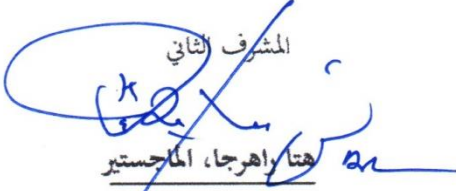 المشرف الثاني
هتا راهرجا، الماجستير